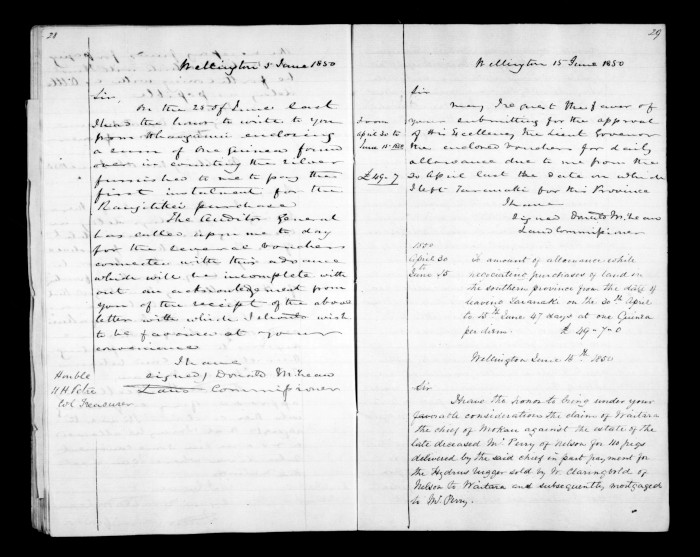 28
Wellington 5 June 1850
Sir,
On the 25 of June last
I had the honor to write to you
from Whanganui enclosing
a sum of One Guinea found
over in counting the silver
furnished to me to pay the
first instalment for the
Rangitikei purchase
The Auditor General
has called upon me to day
for the several vouchers
connected with this advance
which will be incomplete with
out an acknowledgement from
you of the receipt of the above
letter with which I should wish
to be favored at your
convenience
I have
signed) Donald McLean
Land Commissioner
Honble
H H Petre
Col Treasurer
29
Wellington 15 June 1850
Sir
may I request the favor of
your submitting for the approval
of His Excellency the Lieut Governor
the enclosed vouchers for daily
allowance due to me from the
30 April last the date on which
I left Taranaki for this Province
From
April 30 to
June 15 1850
£49-7
I have
signed Donald McLean
Land Commissioner
1850
April 30
to
June 15
To amount of allowance while
negociating purchases of land in
the southern province from the date of
leaving Taranaki on the 30th April
to 15th June 47 days at one Guinea
per diem. £49-7-0
Wellington June 4th 1850
Sir
I have the honor to bring under your
favorable considerations the claim of Waitara
the chief of Mokau against the estate of the
late deceased Mr Perry of Nelson for 110 pigs
delivered by the said chief in part payment for
the Hydrus lugger sold by W. Claringbold of
Nelson to Waitara and subsequently mortgaged
to Mr Perry.